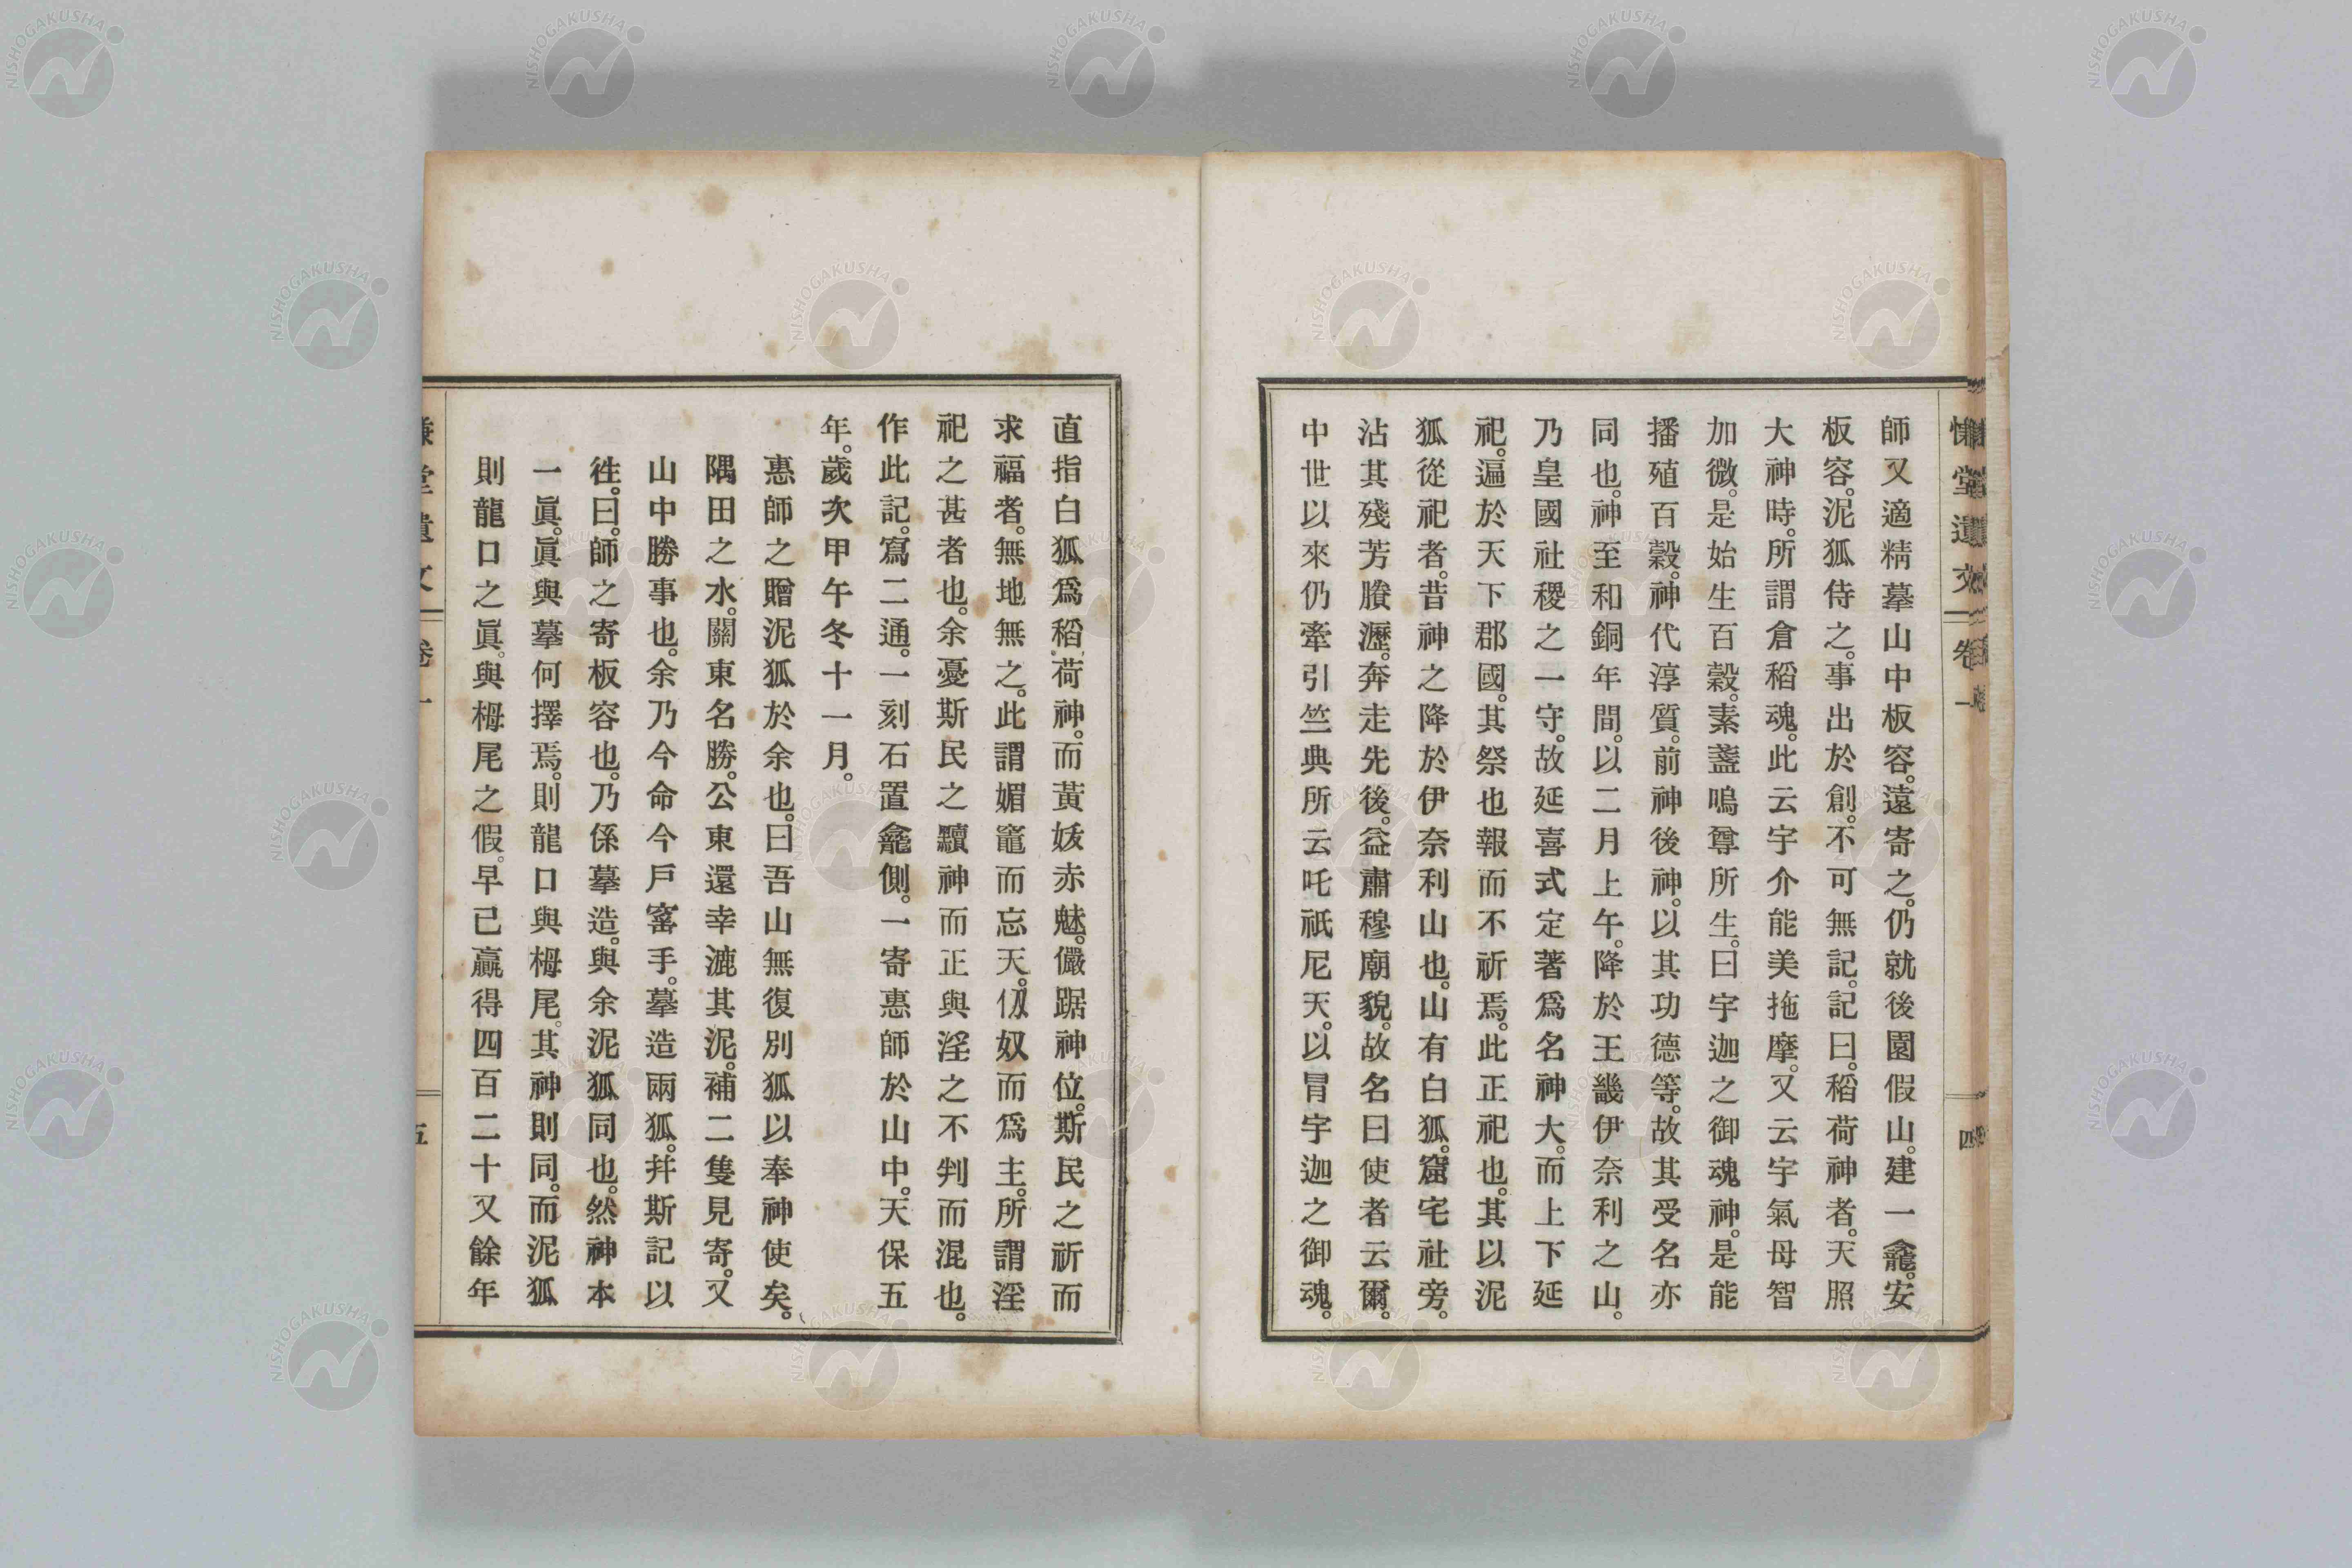 慊堂遺文 卷一 四
師又適精摹山中板容。遠寄之。仍就後園假山。建一龕。安
板容。泥狐侍之。事出於創。不可無記。記曰。稻荷神者。天照
大神時。所謂倉稻魂。此云宇介能美拖摩。又云宇氣母智
加微。是始生百穀。素盞嗚尊所生。曰宇迦之御魂神。是能
播殖百穀。神代淳質。前神後神。以其功德等。故其受名亦
同也。神至和銅年間。以二月上午。降於王畿伊奈利之山。
乃皇國社稷之一守。故延喜式定著爲名神大。而上下延
祀。遍於天下郡國。其祭也報而不祈焉。此正祀也。其以泥
狐從祀者。昔神之降於伊奈利山也。山有白狐。窟宅社旁。
沾其殘芳賸瀝。奔走先後。益肅穆廟貌。故名曰使者云爾。
中世以來仍牽引竺典所云吒祇尼天。以冒宇迦之御魂。
直指白狐爲稻荷神。而黃妭赤魅。儼踞神位。斯民之祈而
求福者。無地無之。此謂媚竈而忘天。仭奴而爲主。所謂淫
祀之甚者也。余憂斯民之黷神而正與淫之不判而混也。
作此記。寫二通。一刻石置龕側。一寄惠師於山中。天保五
年。歲次甲午冬十一月。
惠師之贈泥狐於余也。曰吾山無復別狐以奉神使矣。
隅田之水。關東名勝。公東還幸漉其泥。補二隻見寄。又
山中勝事也。余乃今命今戶窰手。摹造兩狐。幷斯記以
徃。曰。師之寄板容也。乃係摹造。與余泥狐同也。然神本
一眞。眞與摹何擇焉。則龍口與栂尾。其神則同。而泥狐
則龍口之眞。與栂尾之假。早已贏得四百二十又餘年
慊堂遺文 卷一 五
NISHOGAKUSHA